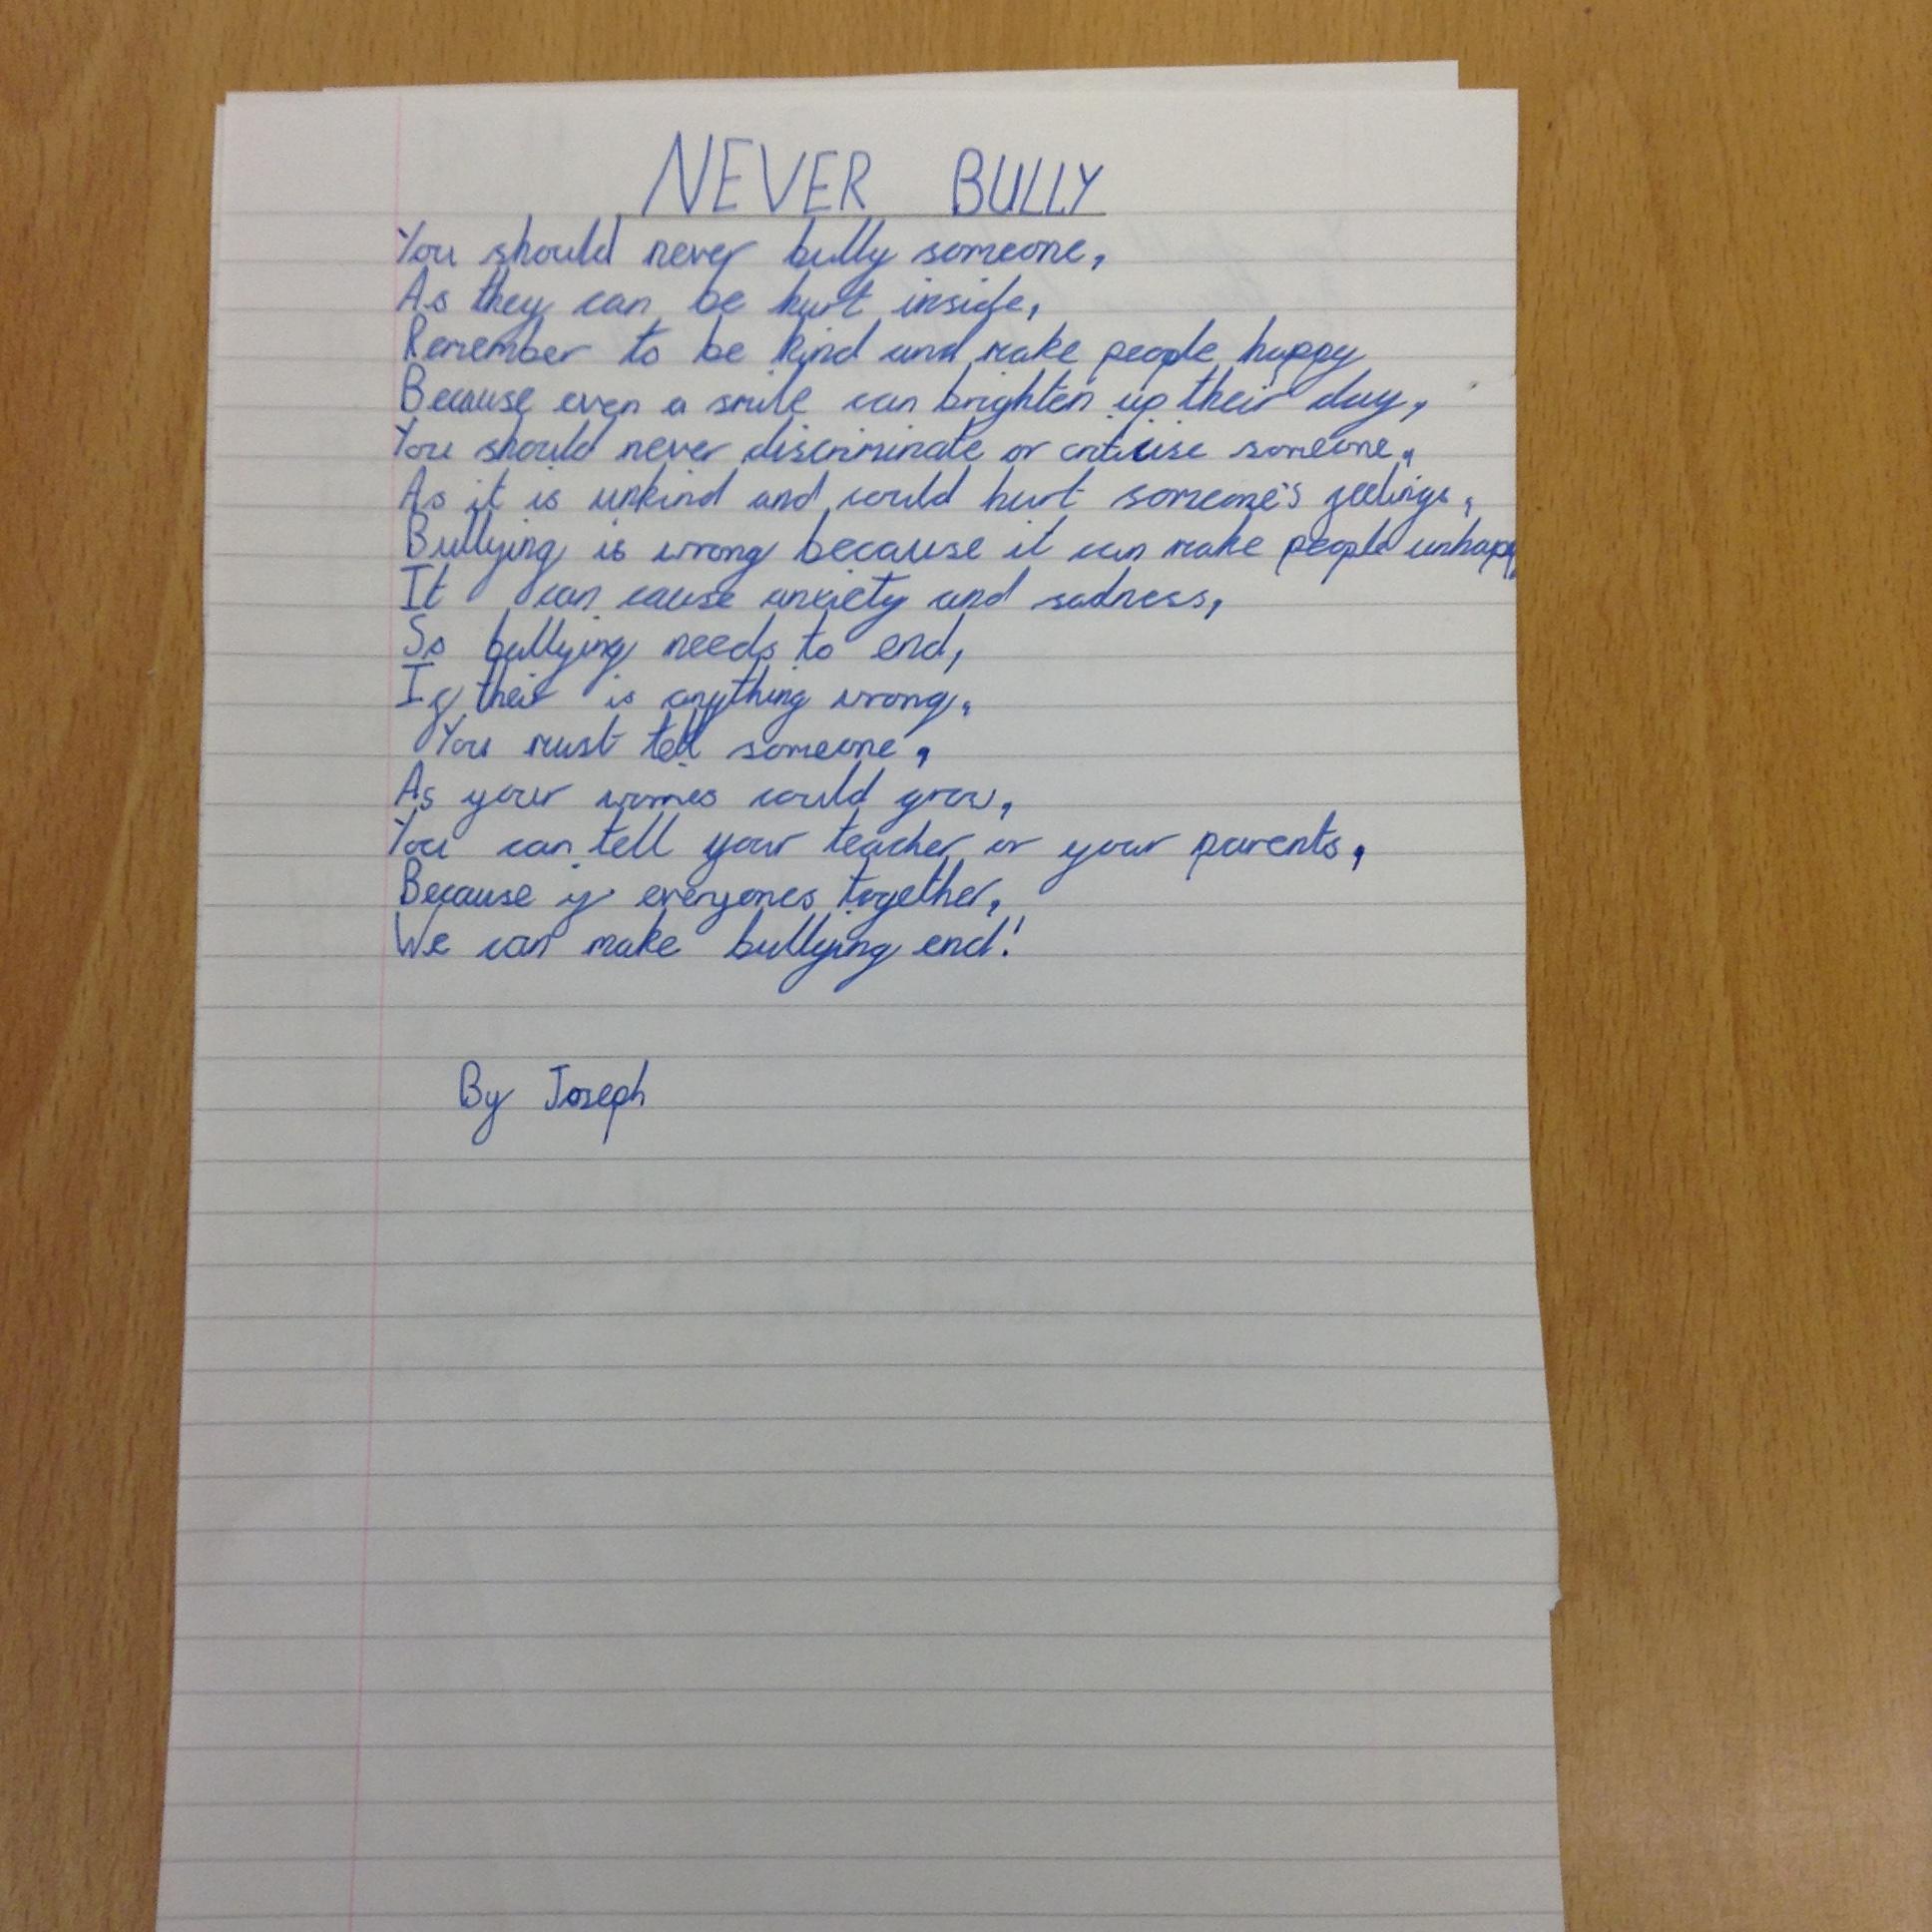 NEVER BULLY
You should never bully someone,
As they can be hurt inside,
Remember to be kind and make people happy
Because even a smile can brighten up their day,
You should never discriminate or criticise someone,
As it is unkind and could hurt someone's feelings,
Bullying is wrong because it can make people unhappy,
It can cause anxiety and sadness,
So bullying needs to end,
If their is anything wrong,
You must tell someone,
As your worries could grow,
You can tell your teacher or your parents,
Because if everyones together,
We can make bullying end!
By Joseph